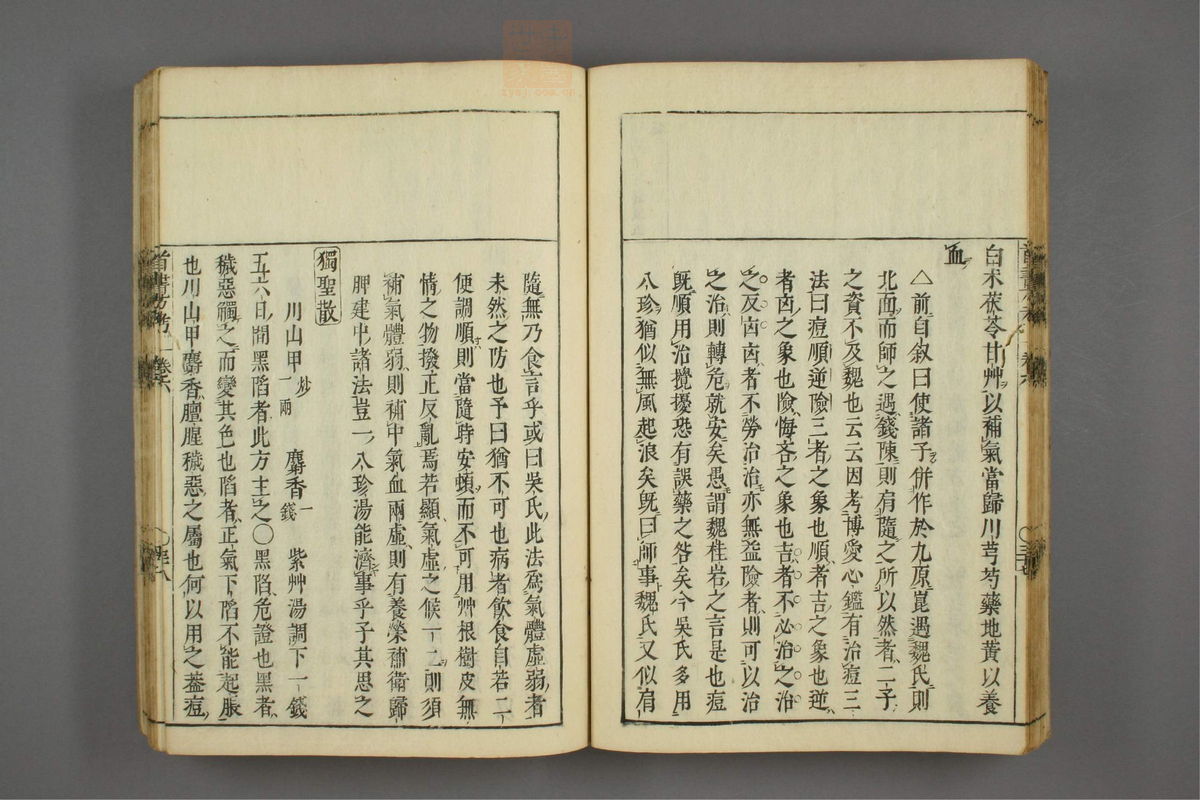 白朮茯苓甘艸以補氣當歸川芎芍藥地黃以養
血
△前自叙曰使諸子併作於九原崑遇魏氏則
北面而師之遇錢陳則肩隨之所以然者二子
之資不及魏也云云因考博愛心鑑有治痘三
法曰痘順逆險三者之象也順者吉之象也逆
者凶之象也險悔吝之象也吉者不必治之治
之反凶凶者不勞治治亦無益險者則可以治
之治則轉危就安矣愚謂魏桂岩之言是也痘
旣順用治攪擾恐有誤藥之咎矣今吳氏多用
八珍猶似無風起浪矣旣曰師事魏氏又似肩
隨無乃食言乎或曰吳氏此法爲氣體虛弱者
未然之防也予曰猶不可也病者飲食自若二
便調順則當隨時安頓而不可用艸根樹皮無
情之物撥正反亂焉若顯氣虛之候一二則須
補氣體弱則補中氣血兩虛則有養榮補衛歸
脾建中諸法豈一八珍湯能濟事乎子其思之
獨聖散
川山甲炒一兩 麝香一錢 紫艸湯調下一錢
五六日間黑陷者此方主之〇黑陷危證也黑者
穢惡觸之而變其色也陷者正氣下陷不能起脹
也川山甲麝香膻腥穢惡之屬也何以用之葢痘